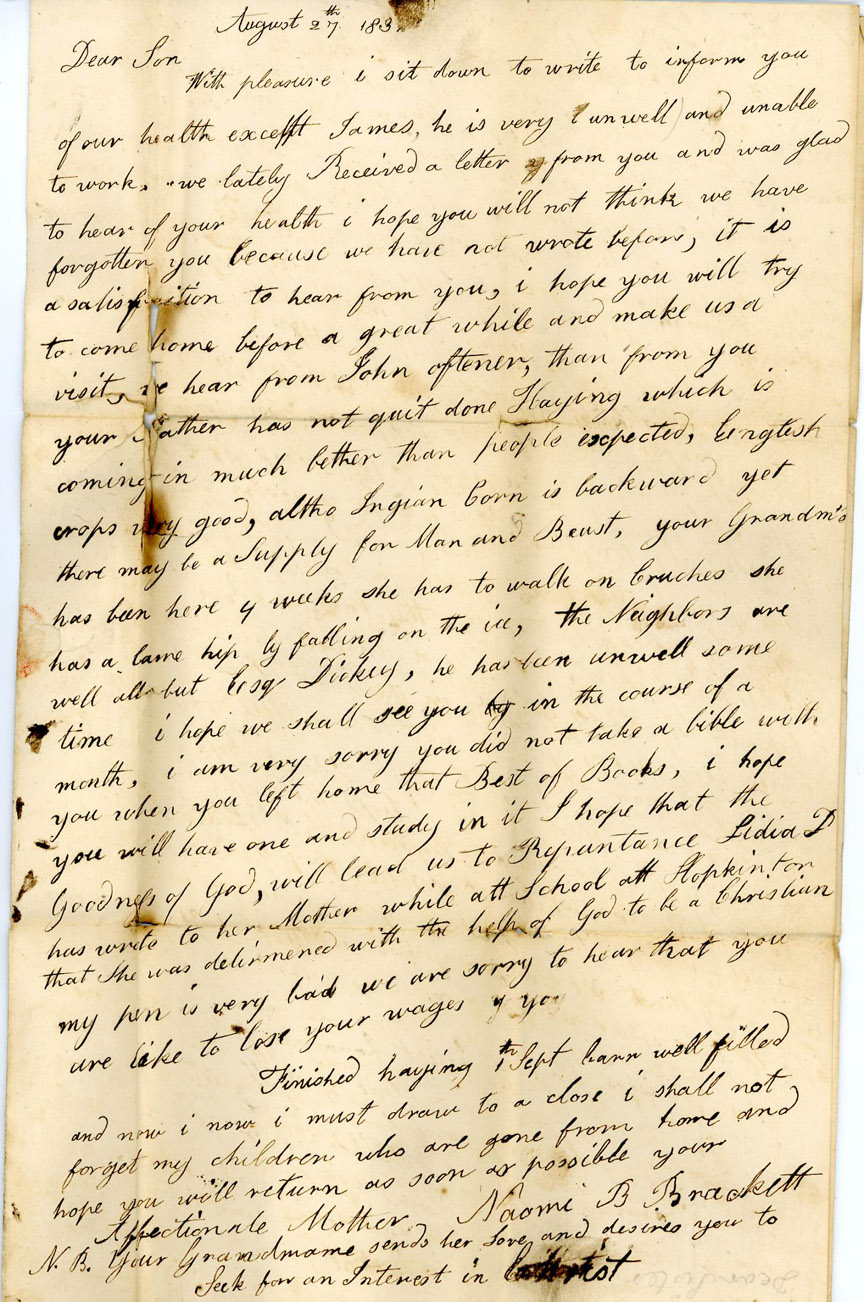 August 27th 183
Dear Son
With pleasure i sit down to write to inform you
of our health except James, he is very unwell and unable
to work, we lately Received a letter from you and was glad
to hear of your health i hope you will not think we have
forgotten you because we have not wrote before, it is
a satisfaition to hear from you, i hope you will try
to come home before a great while and make us a
visit, we hear from John oftener, than from you
your Father has not quit done Haying which is
coming in much bether than people expected, English
crops very good, altho Ingian Corn is backward yet
there may be a Supply for Man and Beast, your Grandm's
has been here 4 weeks she has to walk on Cruches she
has a lame hip by falling on the ice, the Neighbors are
well all but Esqr Dickey, he has been unwell some
time i hope we shall see you in the course of a
month, i am very sorry you did not take a bible with
you when you left home that Best of Books, i hope
you will have one and study in it I hope that the
Goodness of God, will lead us to Repantance Lidia D
has wrote to her Mother while att School att Hopkinton
that She was delirmened with the help of God to be a Christian
my pen is very bad we are sorry to hear that you
are like to lose your wages
Finished haying 1th Sept barn well filled
and now i now i must draw to a close i shall not
forget my children who are gone from home and
hope you will return as soon as possible your
Affectionate Mother Naomi B Brackett
N. B. Your Grandmame sends her love, and desires you to
Seek for an Interest in Christ